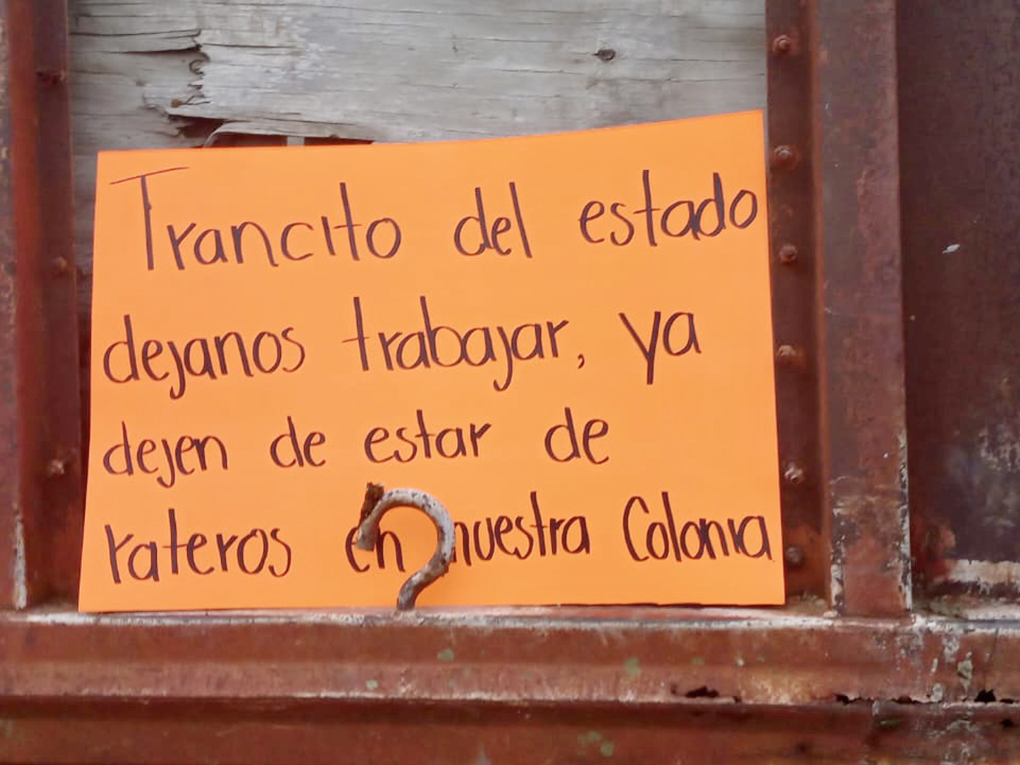 Trancito del estado
dejanos trabajar, ya
dejen de estar de
rateros en nuestra Colonia